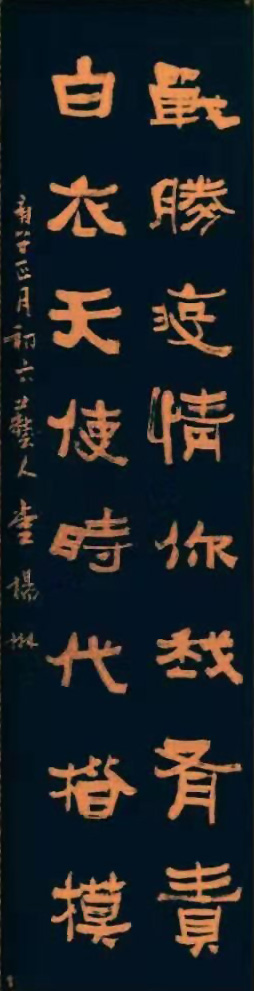 戰勝疫情你我有責
白衣天使時代楷模
庚子正月初六藝人楊